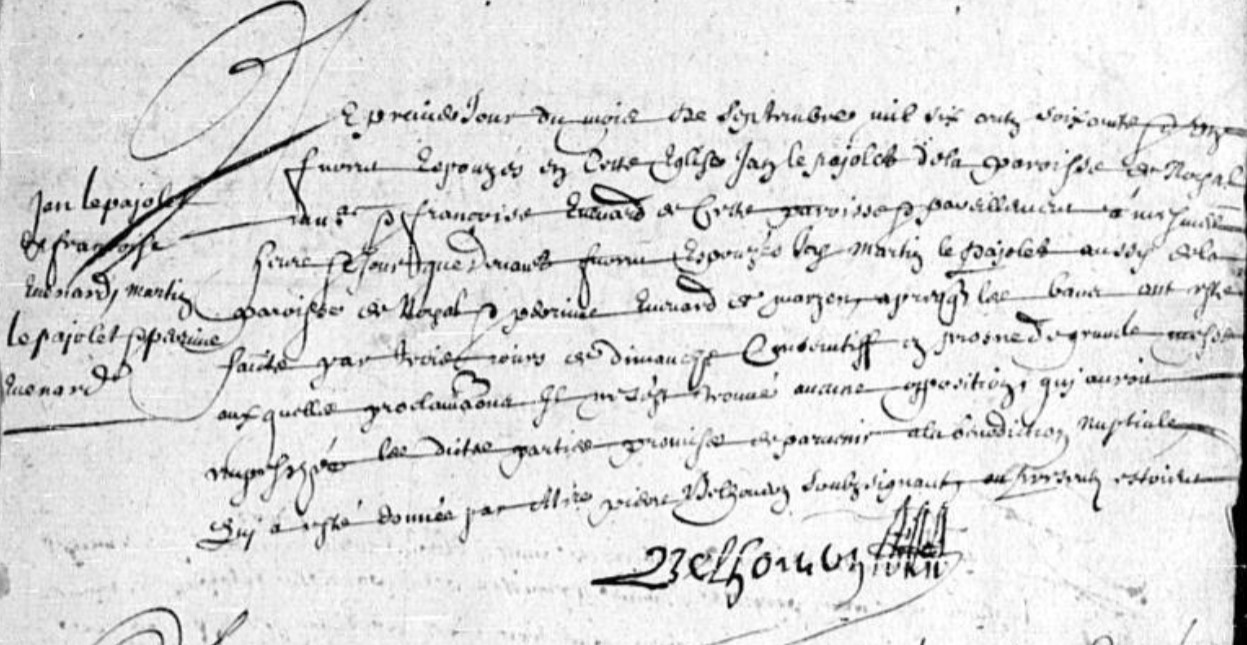 Jan le pajolet
& françoise
Euenard, martin
le pajolet & perrine
Euenard
Le premier Jour du mois de septembre mil six cents soixante &
furent Espouzés en Cette Eglise Jan le pajolet de la paroisse de Noyal
& françoise Euenard de Cette paroisse & pareillement a mesme
heure & Jour que deuant furent Espouzés martin le pajolet aussy de la
paroisse de Noyal & perrine Euenard de marzen, apres q les bans ont esté
faicts par trois jours de dimanche Consecutiff en prosne de grande messe
aux quelles proclama͠ons Il ne s'est trouué aucune opposition, qui auroit
empesché les dictes parties promises de paruenir a la benediction Nuptialle
Qui a esté donnée par Mire pierre Belhouarn soubzsignant, ou presents estoient
Belhouarn